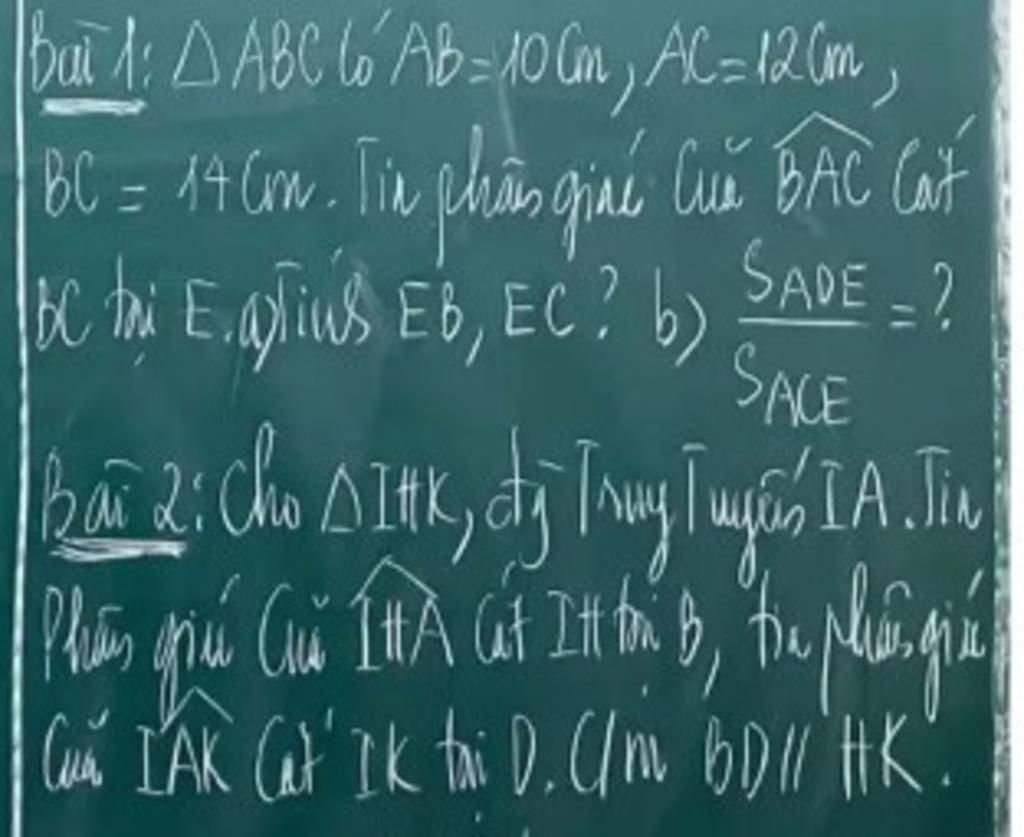 Bài 1: △ ABC Có AB=10Cm, AC=12Cm,
BC = 14Cm. Tia phân giác Của BAC Cắt
BC tại E. a) Tính EB, EC? b) SADE/SACE = ?
Bài 2: Cho △IHK, đg Trung Tuyến IA. Tia
Phân giác Của IHA Cắt IH tại B, tia phân giác
Của IAK Cắt IK tại D. C/m BD // HK.